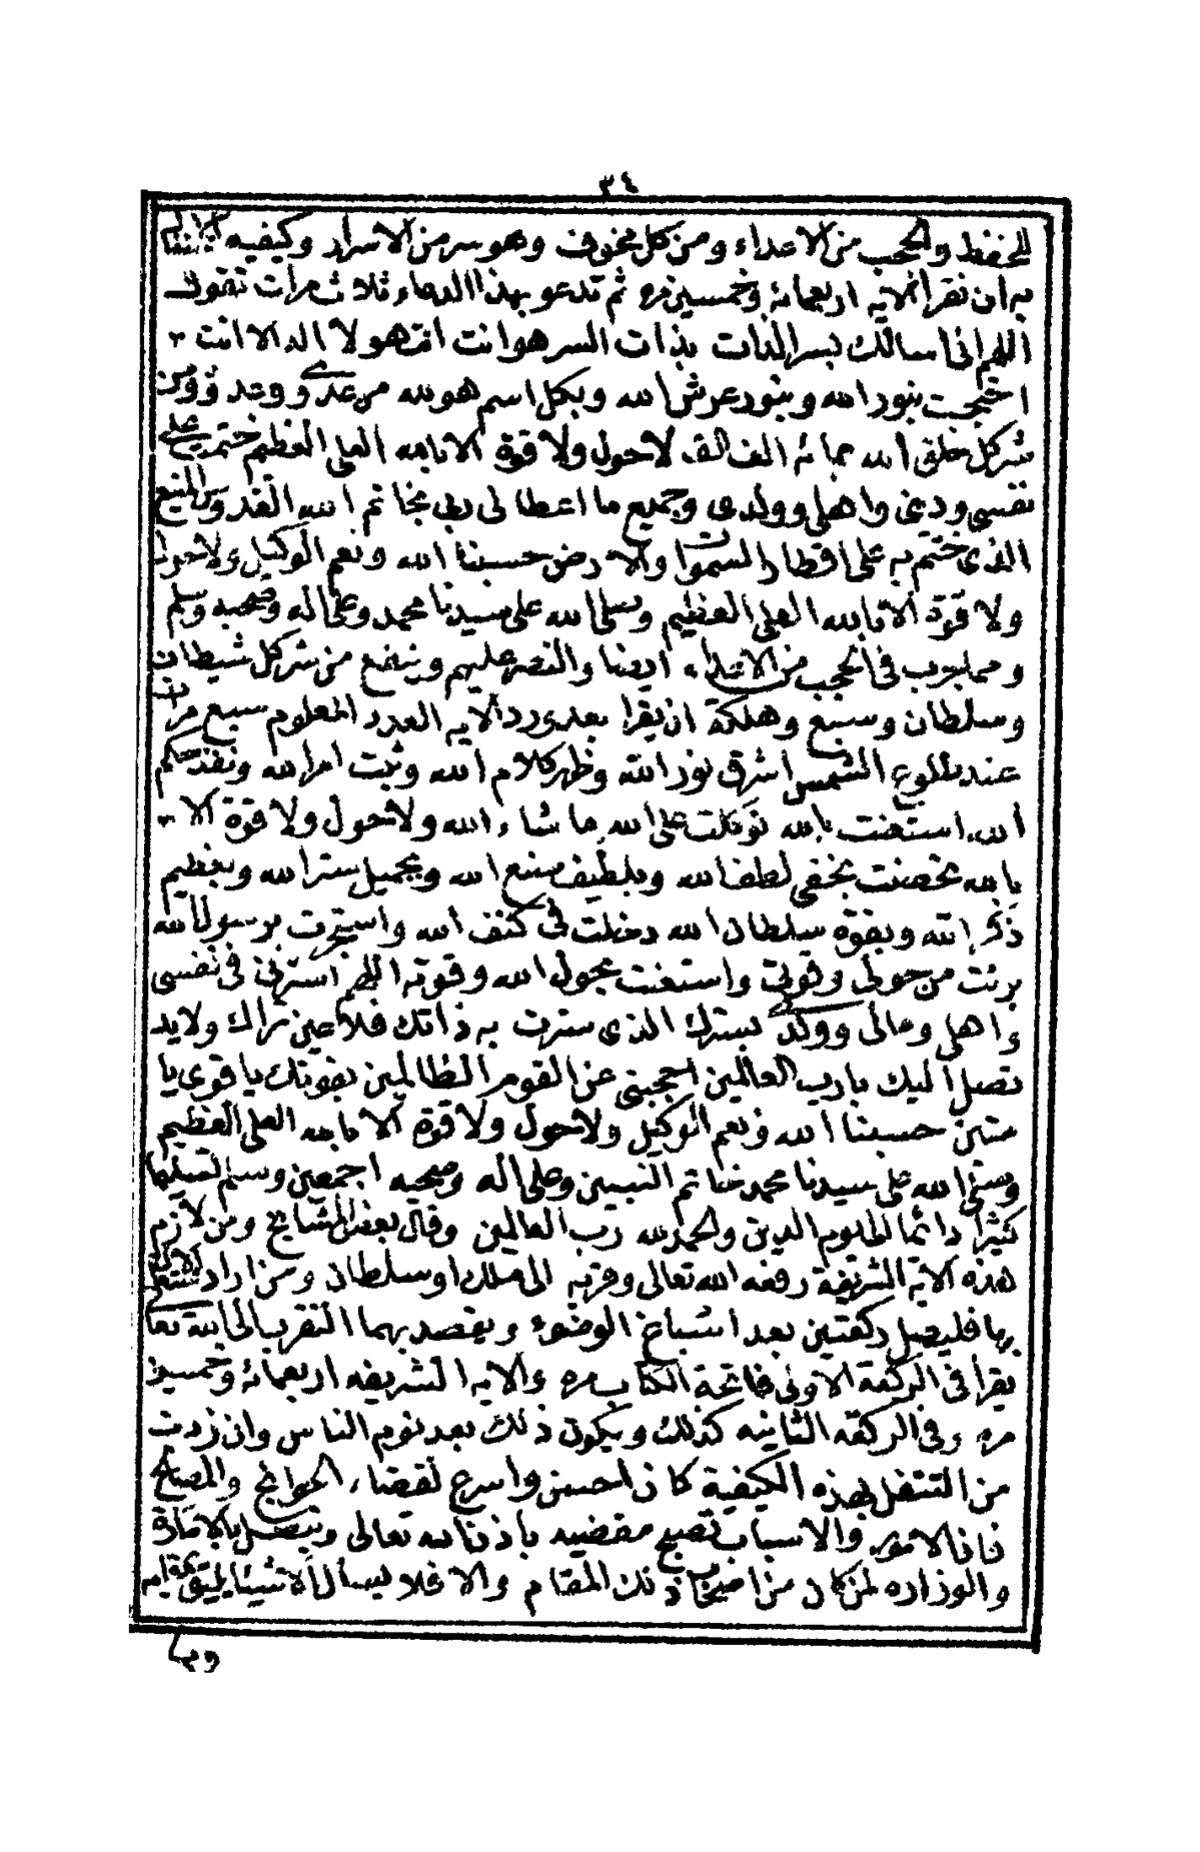 ٣٤
للحفظ والحجب من الاعداء ومن كل مخوف وهو سر من الاسرار وكيفيه
به ان تقرا الايه اربعمائة وخمسين مره ثم تدعو بهذا الدعاء ثلاث مرات تقول
اللهم انى اسالك بسر الذات بذات السر هو انت انت هو لا اله الا انت
احتجبت بنور الله وبنور عرش الله وبكل اسم هو لله من عدوى وعدو ومن
شر كل خلق الله بمائة الف الف لا حول ولا قوة الا بالله العلى العظيم ختمت على
نفسى ودينى واهلى وولدى وجميع ما اعطانى ربى بخاتم الله القدوس المنيع
الذى ختم به على اقطار السموات والارض حسبنا الله ونعم الوكيل ولا حول
ولا قوة الا بالله العلى العظيم وصلى الله على سيدنا محمد وعلى اله وصحبه وسلم
ومما يجرب فى الحجب من الاعداء ايضا والنصر عليهم وينفع من شر كل شيطان
وسلطان وسبع وهلكة ان يقرا بعد ورد الايه العدد المعلوم سبع مرات
عند طلوع الشمس اشرق نور الله وظهر كلام الله وثبت امر الله ونفذ حكم
الله استعنت بالله توكلت على الله ما شاء الله ولا حول ولا قوة الا
بالله تحصنت بخفى لطف الله وبلطيف صنع الله وبجميل ستر الله وبعظيم
ذكر الله وبقوة سلطان الله دخلت فى كنف الله واستجرت برسول الله
برئت من حولى وقوتى واستعنت بحول الله وقوته اللهم استرنى فى نفسى
واهلى ومالى وولدى بسترك الذى سترت به ذاتك فلا عين تراك ولا يد
تصل اليك يارب العالمين احجبنى عن القوم الظالمين بقوتك يا قوى يا
متين حسبنا الله ونعم الوكيل ولا حول ولا قوة الا بالله العلى العظيم
وصلى الله على سيدنا محمد خاتم النبيين وعلى اله وصحبه اجمعين وسلم تسليما
كثيرا دائما الى يوم الدين والحمد لله رب العالمين وقال بعض المشايخ ومن لازم
هذه الاية الشريفة رفعه الله تعالى وقربه الى ملك او سلطان ومن اراد
بها فليصل ركعتين بعد اسباغ الوضوء ويقصد بهما التقرب الى الله تعا
يقرا فى الركعة الاولى فاتحة الكتاب مره والايه الشريفه اربعمائة وخمسين
مره وفى الركعه الثانيه كذلك ويكون ذلك بعد نوم الناس وان زدت
من التنفل بهذه الكيفية كان احسن واسرع لقضاء الحوائج والمصالح
فان الامور والاسباب تصبح مقضيه باذن الله تعالى ويتصل بالامارة
والوزاره لمن كان من اصحاب ذلك المقام والا فلا يسال الا شيئا يليق بمقامه